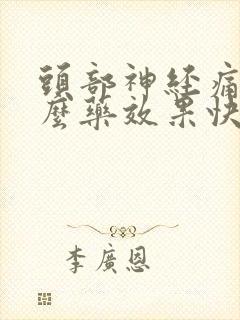 頭部神経痛
麼藥效果快
李廣恩